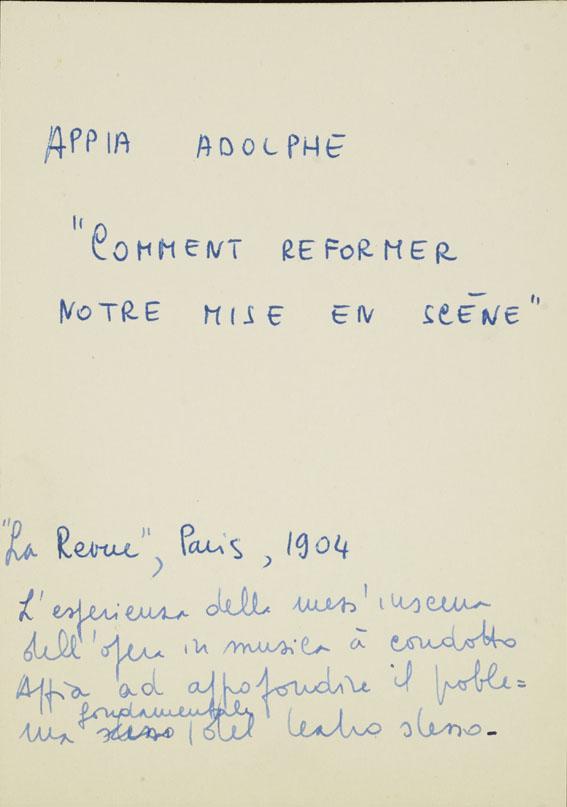 APPIA ADOLPHE
"COMMENT REFORMER
NOTRE MISE EN SCĒNE"
"La Revue", Paris, 1904
L'esperienza della mess'inscena
dell'opera in musica à condotto
Appia ad appofondire il proble=
fondamentale
ma stesso del teatro stesso.-